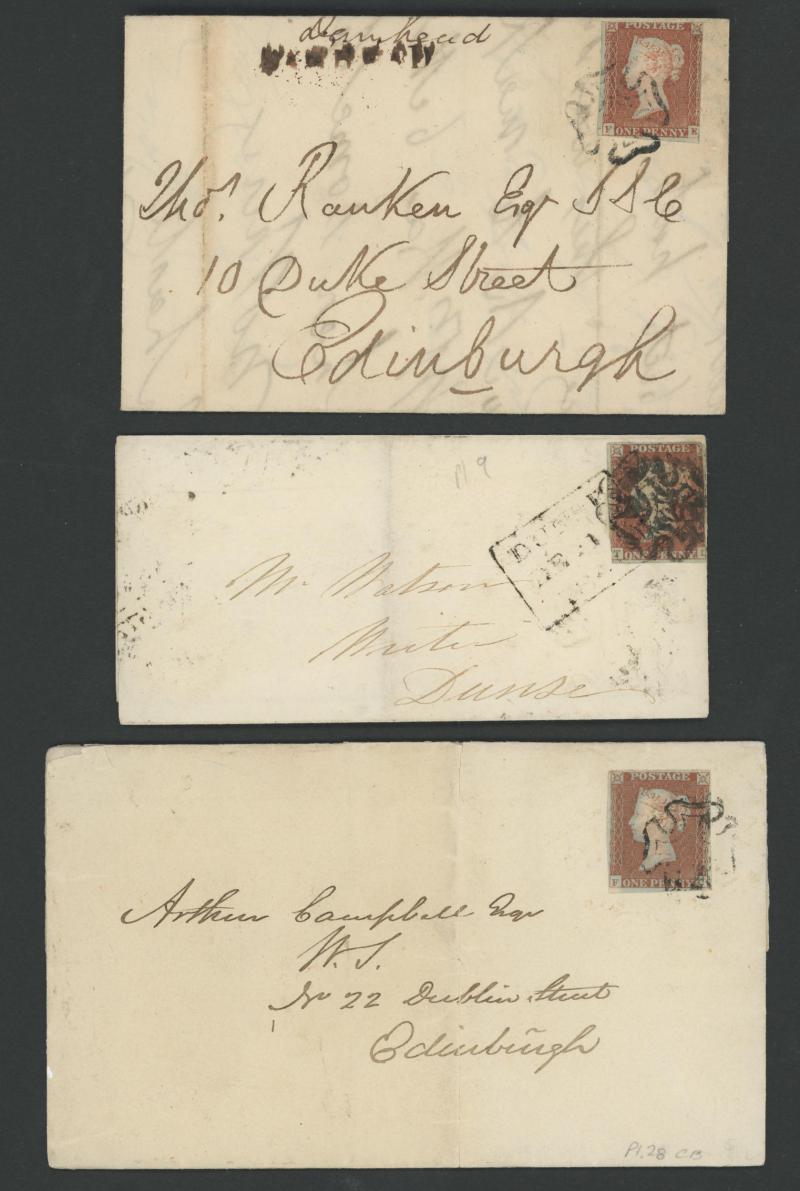 Damhead
POSTAGE
F K
ONE PENNY
Thos. Ranken Esqr S S C
10 Duke Street
Edinburgh
Pl 9
POSTAGE
ONE PENNY
Mr Watson
Writer
Dunse
POSTAGE
F
ONE PENNY
Arthur Campbell Esqr
W. S.
No 22 Dublin Street
Edinburgh
Pl. 28 CB